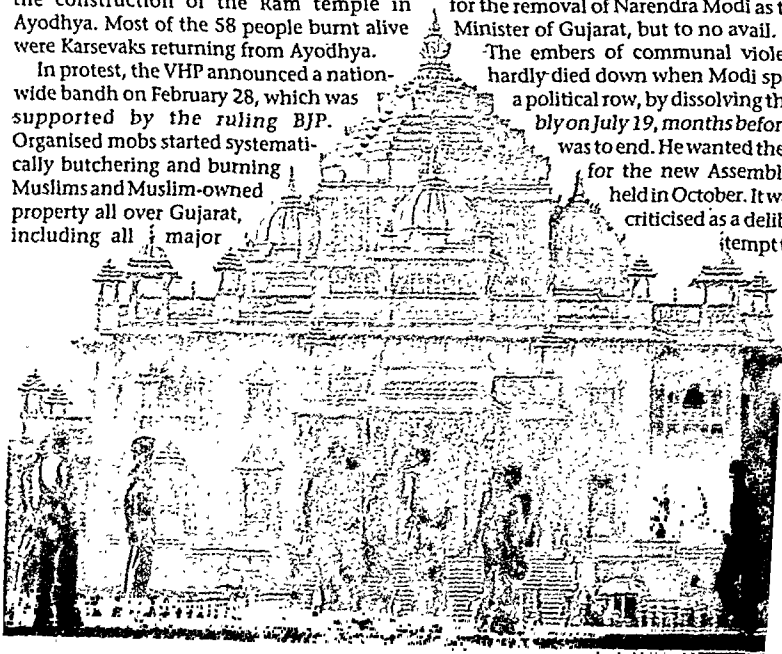 the construction of the Ram temple in
Ayodhya. Most of the 58 people burnt alive
were Karsevaks returning from Ayodhya.
In protest, the VHP announced a nation-
wide bandh on February 28, which was
supported by the ruling BJP.
Organised mobs started systemati-
cally butchering and burning
Muslims and Muslim-owned
property all over Gujarat,
including all major
for the removal of Narendra Modi as t
Minister of Gujarat, but to no avail.
The embers of communal viole
hardly died down when Modi sp
a political row, by dissolving th
bly on July 19, months befor
was to end. He wanted the
for the new Assembl
held in October. It w
criticised as a delib
tempt